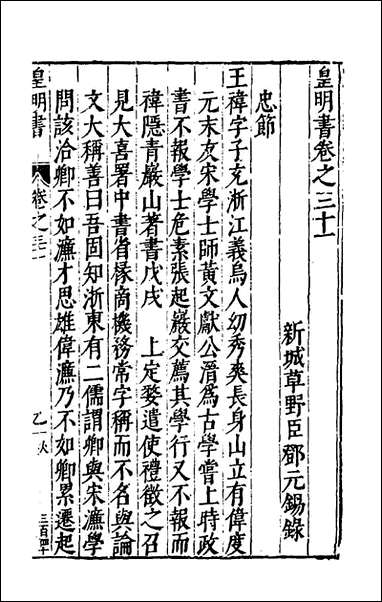 皇明書卷之三十一
新城草野臣鄧元錫錄
忠節
王禕字子充浙江義烏人幼秀爽長身山立有偉度
元末友宋學士師黃文獻公溍爲古學嘗上時政
書不報學士危素張起巖交薦其學行又不報而
禕隱青巖山著書戊戌 上定婺遣使禮徵之召
見大喜署中書省掾商機務常字稱而不名與論
文大稱善曰吾固知浙東有二儒謂卿與宋濂學
問該洽卿不如濂才思雄偉濂乃不如卿累遷起
皇明書
卷之三十一